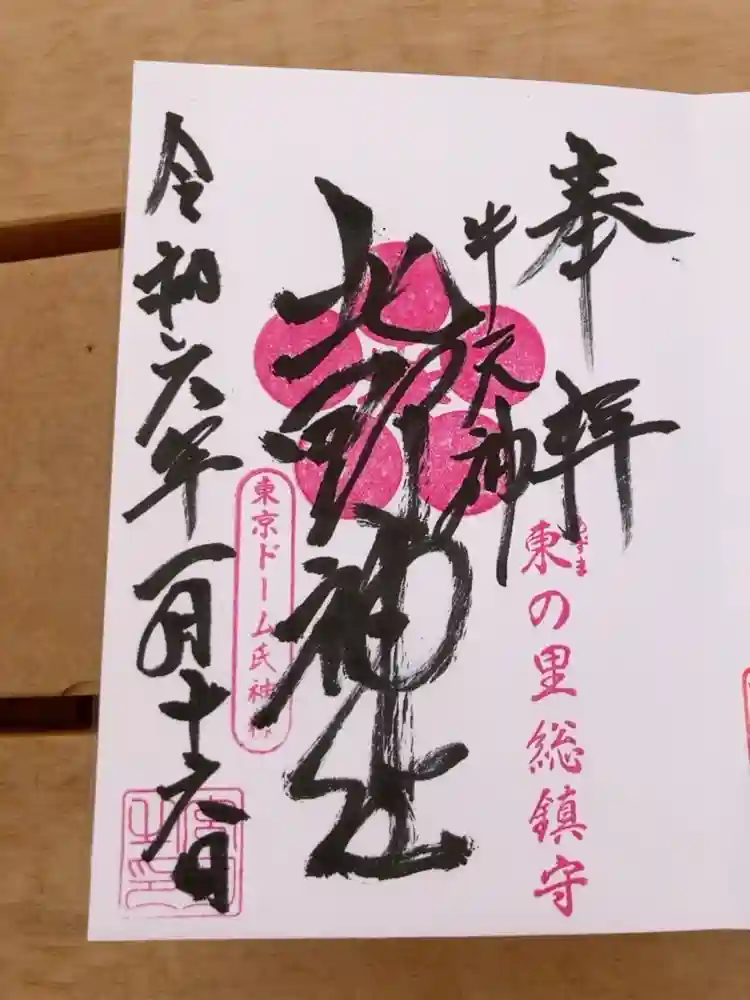 奉拝
牛天神
東の里総鎮守
あずま
北野神社
東京ドーム氏神様
令和六年一月十六日